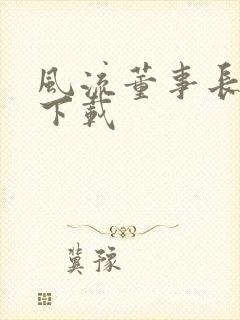 風流董事長
下載
冀豫